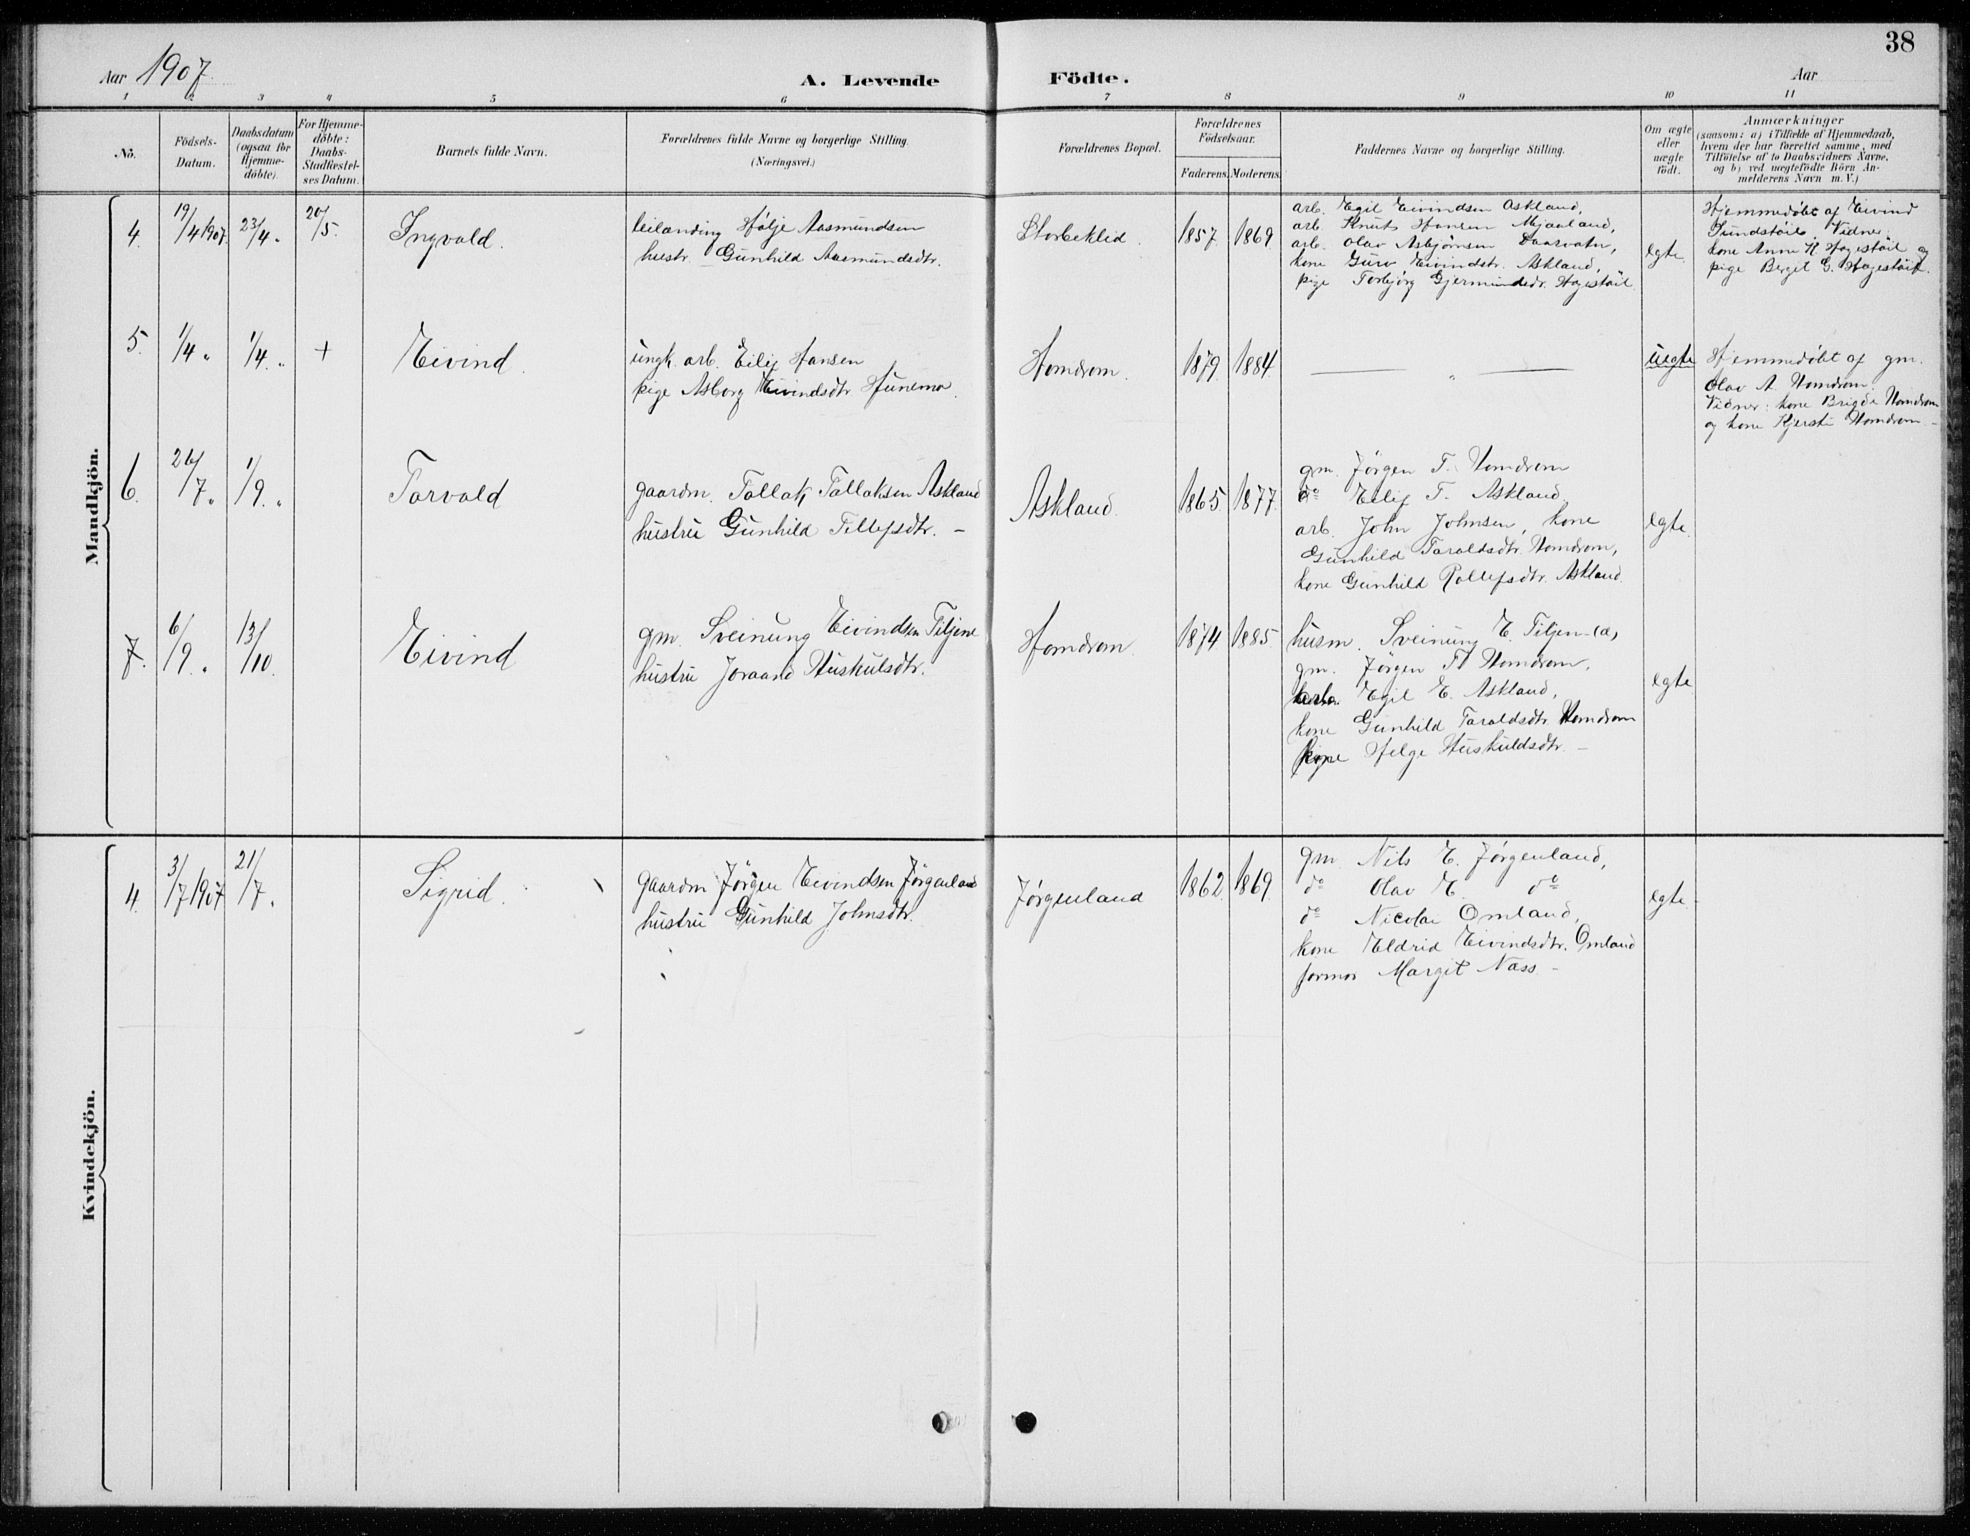 38
Aar 1907.
A. Levende Födte.
Aar
1 2 3 4 5 6 7 8 9 10 11
No.
Födsels-
Datum.
Daabsdatum
(ogsaa for
Hjemme-
döbte).
For Hjemme-
döbte:
Daabs-
Stadfæstel-
ses Datum.
Barnets fulde Navn.
Forældrenes fulde Navne og borgerlige Stilling.
(Næringsvei.)
Forældrenes Bopæl.
Forældrenes
Födselsaar.
Faderens. Moderens.
Faddernes Navne og borgerlige Stilling.
Om ægte
eller
uægte
födt.
Anmærkninger
(saasom: a) i Tilfælde af Hjemmedaab,
hvem der har forrettet samme, med
Tilföielse af to Daabsvidners Navne,
og b) ved uægtefödte Börn An-
melderens Navn m. V.)
Mandkjön.
4. 19/4 1907. 23/4 „ 20/5. Ingvald.
leilænding Hølje Aasmundsen
hustr. Gunhild Aasmundsdtr.
Storbeklid. 1857. 1869
arb. Egil Eivindsen Askland,
arb Knut Hansen Mjaaland,
arb. Olav Asbjørnsen Daarvatn,
kone Guro Eivindstr. Askland,
pige Torbjørg Gjermundsdr. Hagestøil
egte.
Hjemmedøbt af Eivind
Sundstøil. Vidner:
kone Anne K. Hagestøil og
pige Bergit G. Hagestøil.
5. 1/4 „ 1/4 „ + Eivind.
ungk. arb. Eilef Hansen
pige Asborg Eivindsdtr Hunemo.
Homdrom. 1879. 1884.
— „ —
uegte
Hjemmedøbt af gm.
Olav A. Homdrom.
Vidner: kone Brigde Homdrom
og kone Kjersti Homdrom –
6. 26/7 „ 1/9. „ Tarvald
gaardm. Tallak Tallaksen Askland
hustru Gunhild Tellefsdtr. –
Askland. 1865. 1877.
gm. Jørgen T. Homdrom
do Eilef T. Askland.
arb. John Johnsen, kone
Gunhild Taraldsdtr. Homdrom,
kone Gunhild Rollefsdtr. Askland.
egte.
7. 6/9 „ 13/10. Eivind
gm. Sveinung Eivindsen Tiljene
hustru Joraand Huskulsdtr.
Homdrom. 1874 1885.
husm. Sveinung E. Tiljen (a)
gm. Jørgen T. Homdrom,
arb. Egil E. Askland,
kone Gunhild Taraldsdtr. Homdrom
pige Helge Huskuldsdtr. –
egte
Kvindekjön.
4. 3/7 1907 21/7 „ Sigrid.
gaardm Jørgen Eivindsen Jørgenland
hustru Gunhild Johnsdtr.
Jørgenland 1862. 1869.
gm. Nils E. Jørgenland,
do Olav E. do
do Nicolai Omland,
kone Eldrid Eivindsdtr. Omland
jormor Margit Næss –
egte.